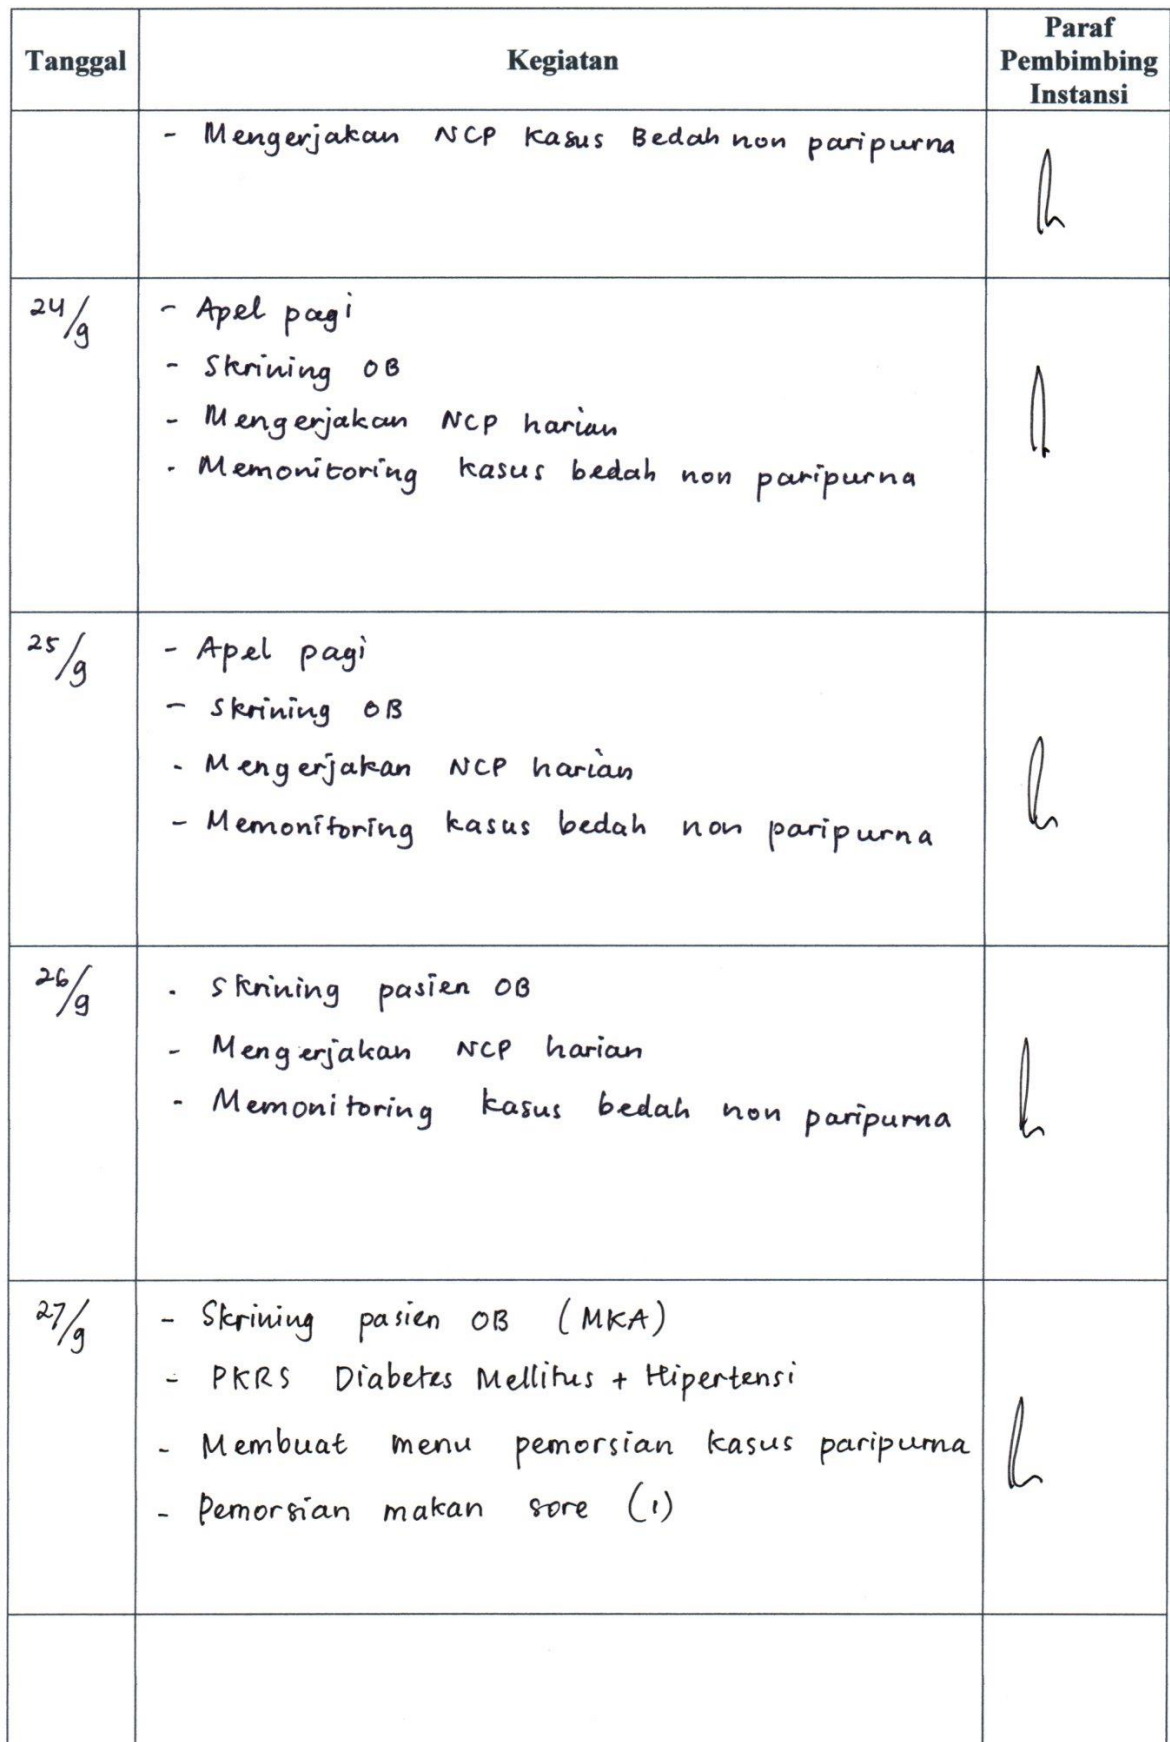 Tanggal
Kegiatan
Paraf
Pembimbing
Instansi
- Mengerjakan NCP Kasus Bedah non paripurna
24/9
- Apel pagi
- Skrining OB
- Mengerjakan NCP harian
- Memonitoring kasus bedah non paripurna
25/9
- Apel pagi
- Skrining OB
- Mengerjakan NCP harian
- Memonitoring kasus bedah non paripurna
26/9
- Skrining pasien OB
- Mengerjakan NCP harian
- Memonitoring kasus bedah non paripurna
27/9
- Skrining pasien OB (MKA)
- PKRS Diabetes Mellitus + Hipertensi
- Membuat menu pemorsian kasus paripurna
- Pemorsian makan sore (1)